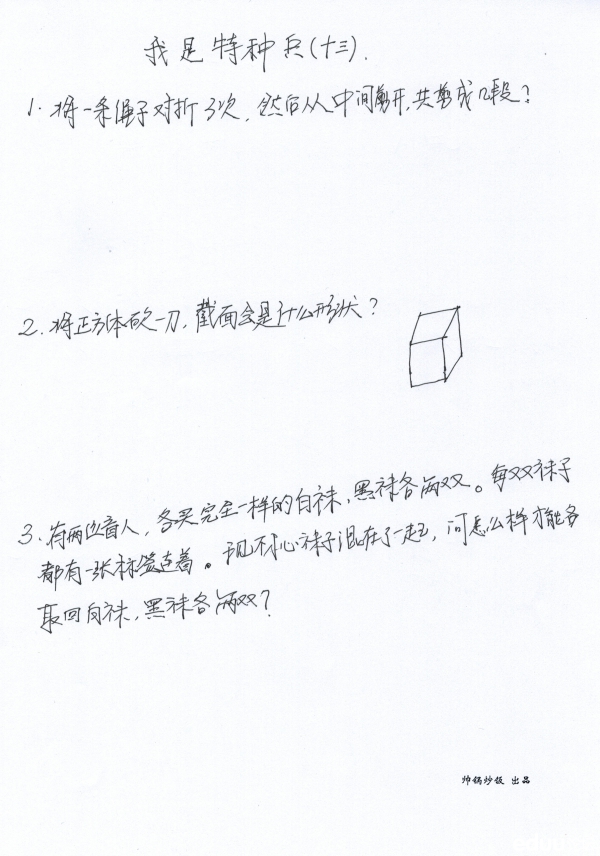 我是特种兵(十三).
1. 将一条绳子对折3次, 然后从中间剪开, 共剪成几段?
2. 将正方体砍一刀, 截面会是什么形状?
3. 有两位盲人, 各买完全一样的白袜, 黑袜各两双。每双袜子
都有一张标签连着。现不小心袜子混在了一起, 问怎么样才能各
取回白袜, 黑袜各两双?
帅锅炒饭 出品